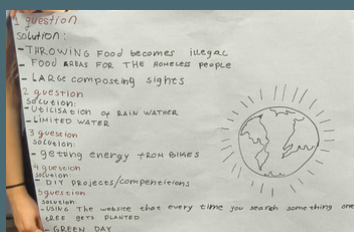 1 question
solution:
- THROWING Food becomes illegal
- FOOD AREAS FOR THE HOMELESS people
- LARGE composting sights
2 question
solution:
- Utilisation of RAIN WATHER
- LIMITED WATER
3 question
solution:
- getting energy FROM BIKES
4 question
solution:
- DIY projects/compentitions
5 question
solution:
- USING The website that every time you search something one
tree gets PLANTED
- GREEN DAY